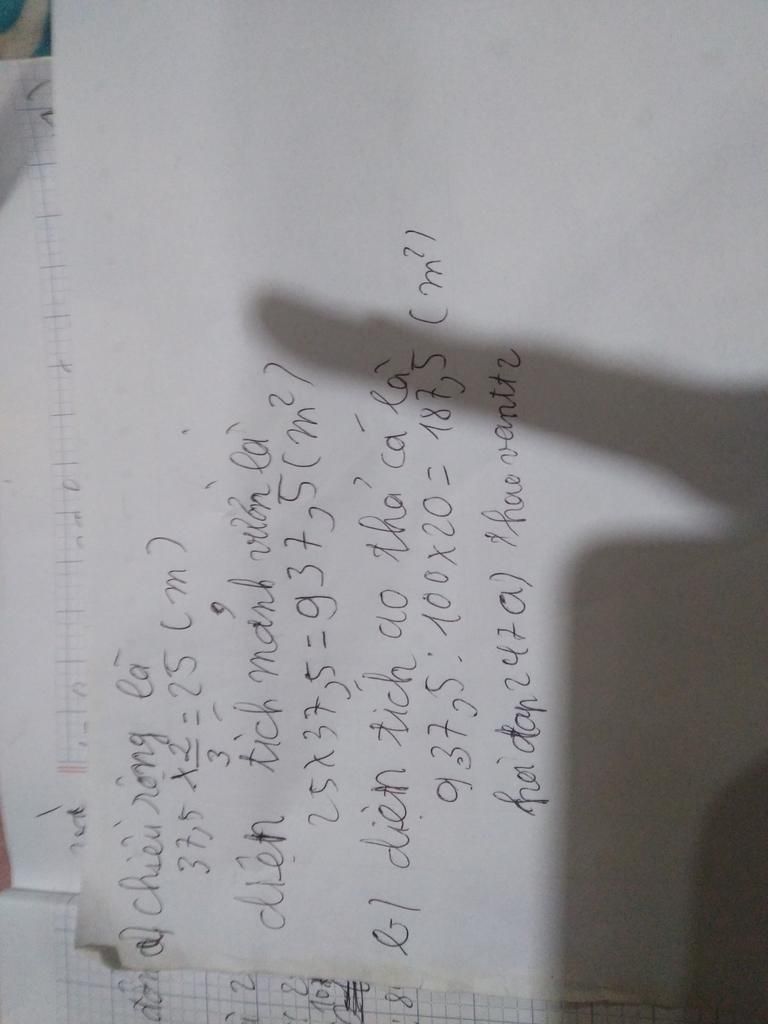 a) chiều rộng là
37,5 x 2/3 = 25 (m)
diện tích mảnh vườn là
25 x 37,5 = 937,5 (m²)
b) diện tích ao thả cá là
937,5 : 100 x 20 = 187,5 (m²)
hỏi đáp 247 a) thao vantt2